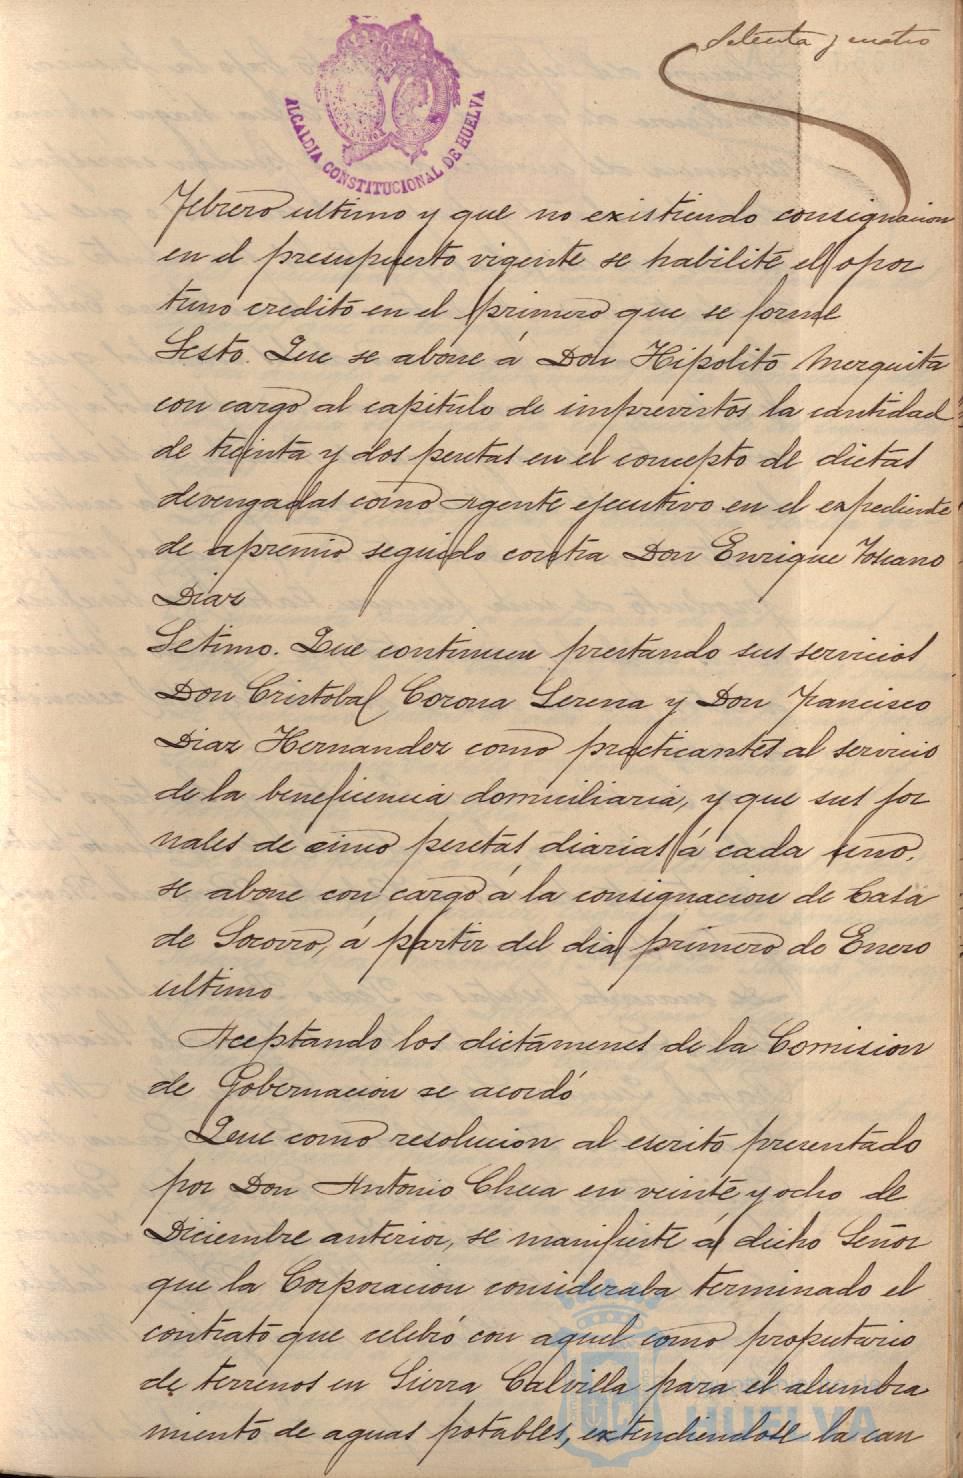 Setenta y cuatro
ALCALDIA CONSTITUCIONAL DE HUELVA
Febrero ultimo y que no existiendo consignacion
en el presupuesto vigente se habilite el opor
tuno credito en el primero que se forme
Sesto. Que se abone á Don Hipolito Mezquita
con cargo al capitulo de imprevistos la cantidad
de treinta y dos pesetas en el concepto de dietas
devengadas como Agente ejecutivo en el expediente
de apremio seguido contra Don Enrique Toscano
Diaz
Setimo. Que continuen prestando sus servicios
Don Cristobal Corona Serena y Don Francisco
Diaz Hernandez como practicantes al servicio
de la beneficencia domiciliaria, y que sus jor
nales de cinco pesetas diarias á cada uno,
se abone con cargo á la consignacion de Casa
de Socorro, á partir del dia primero de Enero
ultimo
Aceptando los dictamenes de la Comision
de Gobernacion se acordó
Que como resolucion al escrito presentado
por Don Antonio Checa en veinte y ocho de
Diciembre anterior, se manifieste á dicho Señor
que la Corporacion consideraba terminado el
contrato que celebró con aquel como propietario
de terrenos en Sierra Calvilla para el alumbra
miento de aguas potables, extendiendose la can
HUELVA